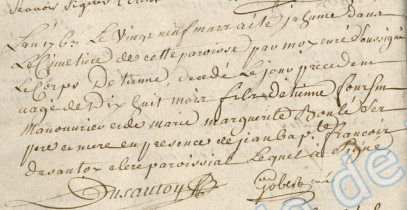 L'an 1763 Le vingt neuf mars a eté jnhumé dans
Le Cimetiere de cette paroisse par moy curé soussigné
Le Corps detienne decedé Le jour precedent
aagé de Dix huit mois fils detienne
Manouvrier et de marie marguerite
pere et mere en presence de jean bapte francois
dusautoy clerc paroissial Lequel a signé
Dusautoy Gobert curé